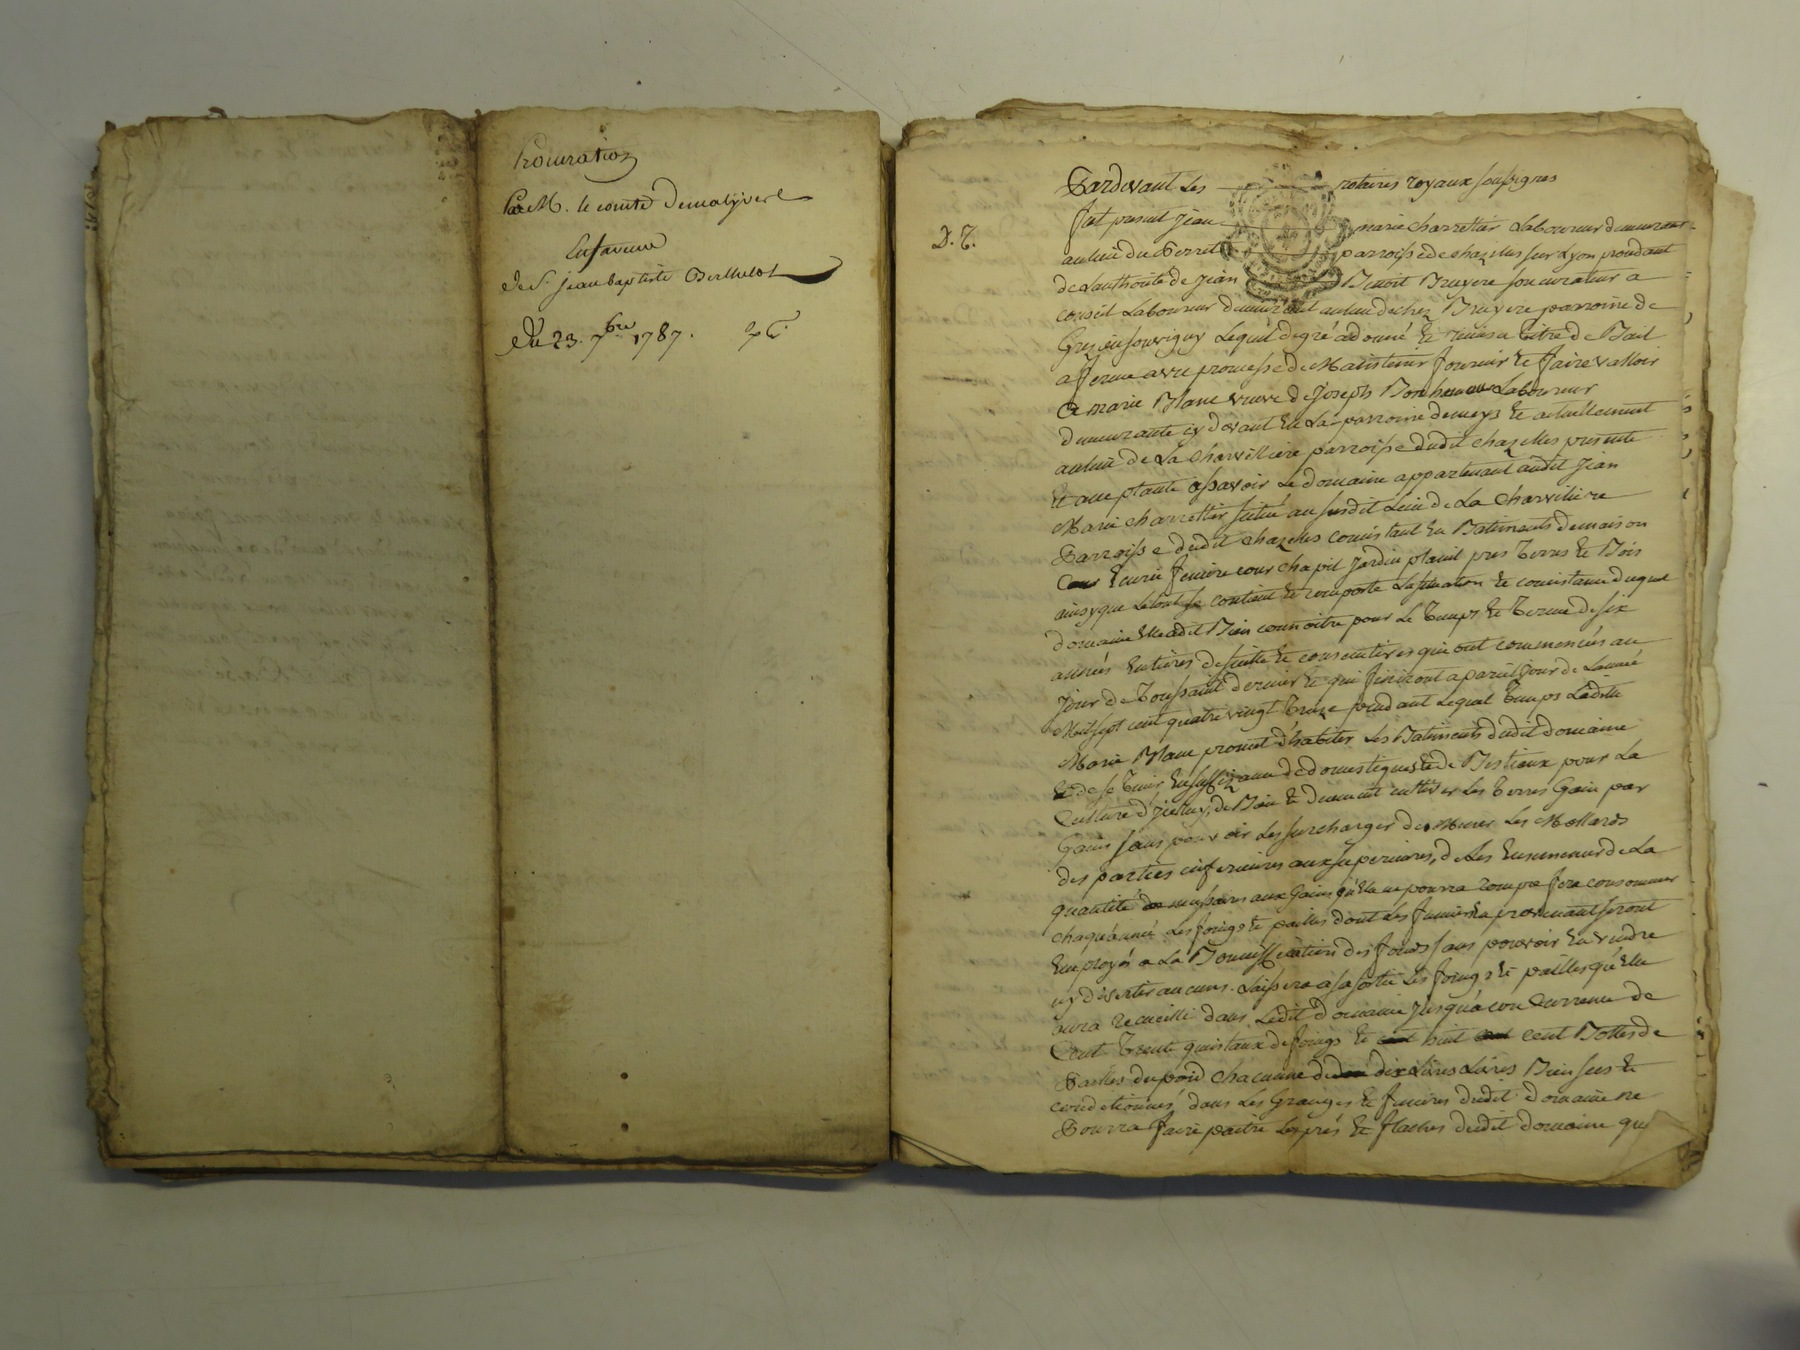 Procuration
Par M. le comte Demalyvert
En faveur
de Sr. jean baptiste Berthelot
Du 23. 7bre 1787.
D. T.
Pardevant Les notaires royaux soussignes
fut present Jean marie charretier Laboureur demeurant
au lieu du Perret parroisse de chazelles sur Lyon procedant
de Lauthorité de Jean Benoit Bruyere son curateur a
conseil Laboureur demeurant au lieu de chez Bruyere parroisse de
Grezieu souvigny Lequel de gré a donné et remis a titre de Bail
a ferme avec promesse de Maintenir fournir et faire valloir
a marie Blanc veuve de Joseph Laboureur
demeurante cy devant en La parroisse de meys et actuellement
au lieu de La Charvilliere parroisse dudit chazelles presente
et acceptante asavoir Le domaine appartenant audit Jean
Marie charretier situé au susdit Lieu de La Charviliere
Parroisse dudit chazelles consistant en Batiments de maison
Ecurie feniere cour chapit jardin plani pres Terres et Bois
ainsy que Letout se contient et comporte La situation et consistance duquel
domaine Elle a dit Bien connoitre pour Le Temps et Terme de six
années Entieres de suitte et consecutives qui ont commencées au
jour de Toussaint dernier et qui finiront a pareil jour de Lannée
Mil sept cent quatre vingt Treize pendant Lequel Temps Ladite
Marie Blanc promet d'habiter Les Batiments dudit domaine
et de se Tenir En suffizance de domestiques et de Bestiaux pour La
Culture d'jcelluy, de Bien et duement cultiver Les Terres Gain par
Gain sans pouvoir Les surcharger de Mener Les Mollards
des parties inferieures aux superieures, de Les Ensemencer de La
quantité necessaire aux Gains qu'Elle ne pourra rompre fera consommer
chaque année Les foings et pailles dont Les fumiers En provenant seront
Employés a La Bonniffication des fonds sans pouvoir En vendre
ny divertir aucuns. Laissera a sa sortie Les foings et pailles qu'Elle
aura recueilli dans Ledit domaine jusqu'a concurrence de
Cent Trente quintaux de foings et huit cent Bottes de
Pailles du poid chacunne de dix Livres Bien secs et
conditionnés, dans Les Granges et fenieres dudit domaine ne
Pourra faire paitre Les prés et flaches dudit domaine que